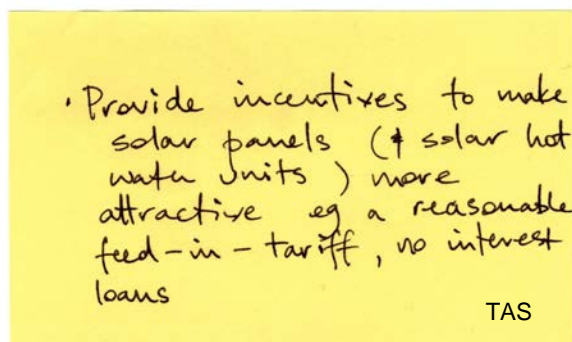 · Provide incentives to make
solar panels (& solar hot
water units) more
attractive eg a reasonable
feed-in-tariff, no interest
loans
TAS